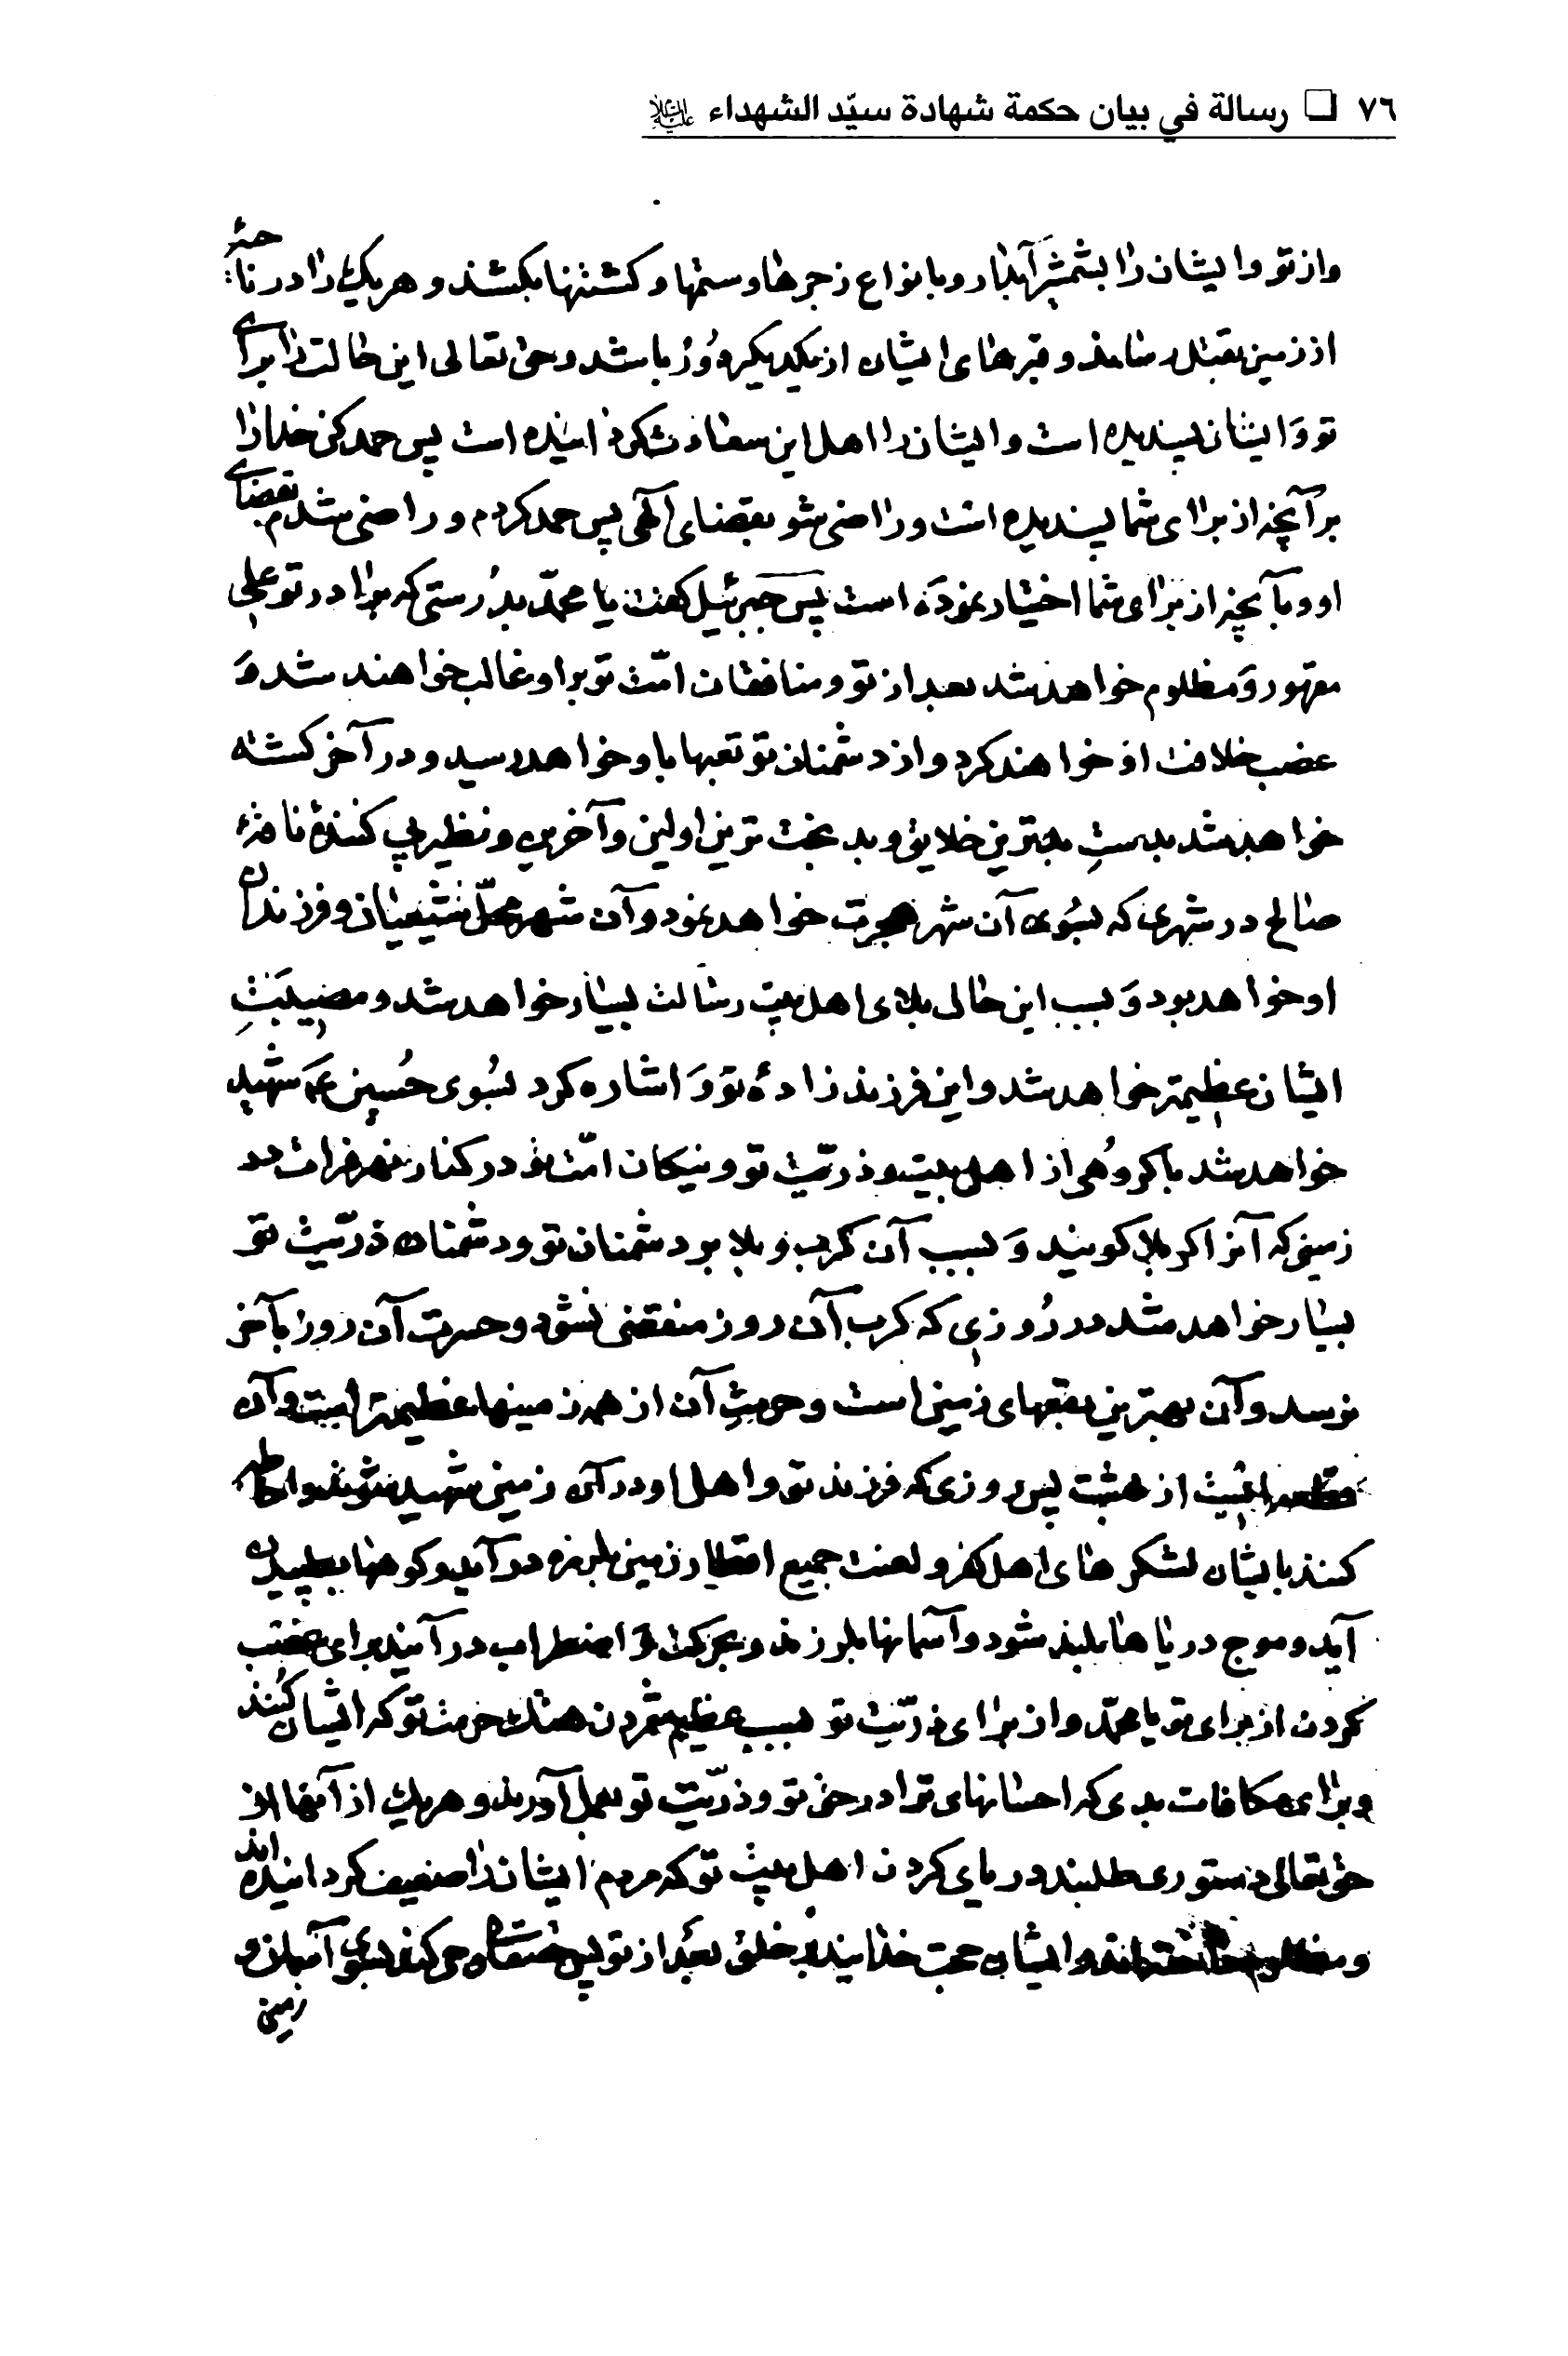 ٧٦ □ رسالة في بيان حكمة شهادة سيّد الشهداء عليه السلام
واز تو وایشان را بشمشیر آبدار و بانواع زجرها و ستمها و کشتنها بکشند و هریک را در ناحیۀ
از زمین بقتل رسانند و قبرهای ایشان از یکدیگر دُور باشد و حق تعالی این حالت را برای
تو وَ ایشان پسندیده است و ایشان را اهل این سعادت کردانیده است پس حمد کن خدا را
بر آنچه از برای شما پسندیده است و راضی شو بقضای آلهی پس حمد کردم و راضی شدم بقضای
او و بآنچه از برای شما اختیار نمودَه است پس جبرئیل کفت یا محمّد بدُرستی که برادر تو علی
مقهور وَ مظلوم خواهد شد بعد از تو و منافقان امّت تو بر او غالب خواهند شد وَ
غصب خلافت او خواهند کرد و از دشمنان تو تعبها باو خواهد رسید و در آخر کشته
خواهد شد بدستِ بدترین خلایق و بدبخت ترین اولین و آخرین و نظیر پی کنندۀ ناقۀ
صالح در شهری که بسُوی آن شهر هجرت خواهد نمود و آن شهر محلّ شیعیان و فرزندان
او خواهد بود وَ بسبب این حال بلای اهل بیت رسالت بسیار خواهد شد و مصیبتِ
ایشان عظیمتر خواهد شد و این فرزند زادۀ تو وَ اشاره کرد بسُوی حُسین ع م شهید
خواهد شد با کروُهی از اهل بیت و ذریّت تو و نیکان امّت تو در کنار نهر فرات در
زمینی که آنرا کربلا کویند وَ بسبب آن کرب و بلا بر دشمنان تو و دشمنان ذریّت تو
بسیار خواهد شد در رُوزی که کرب آن روز منقضی نشود و حسرت آن روز بآخر
نرسد و آن بهترین بقعهای زمین است و حرمتِ آن از همه زمینها عظیمتر است و آن
قطعه ایست از بهشت پس روزی که فرزند تو و اهل او در آن زمین شهید شوند و احاطه
کنند بایشان لشکرهای اهل کفر و لعنت جمیع اقطار زمین بلرزه در آید و کوهها بطپیدن
آید و موج دریاها بلند شود و آسمانها بلرزند و بحرکت وَ اضطراب در آیند برای غضب
کردن از برای تو یا محمّد و از برای ذریّت تو بسبب عظیم شمردن هتك حرمت تو که ایشان کُنند
و برای مکافات بدی که احسانهای ترا در حق تو و ذریّت تو بعمل آورند و هریك از آنها از
حق تعالی دستوری طلبند در یاری کردن اهل بیت تو که مردم ایشان را ضعیف کردانیده اند
و مظلوم ساخته اند و ایشان حجت خدایند بر خلق بعد از تو پس حقتعالی وحی کند بسوی آسمان و
زمین